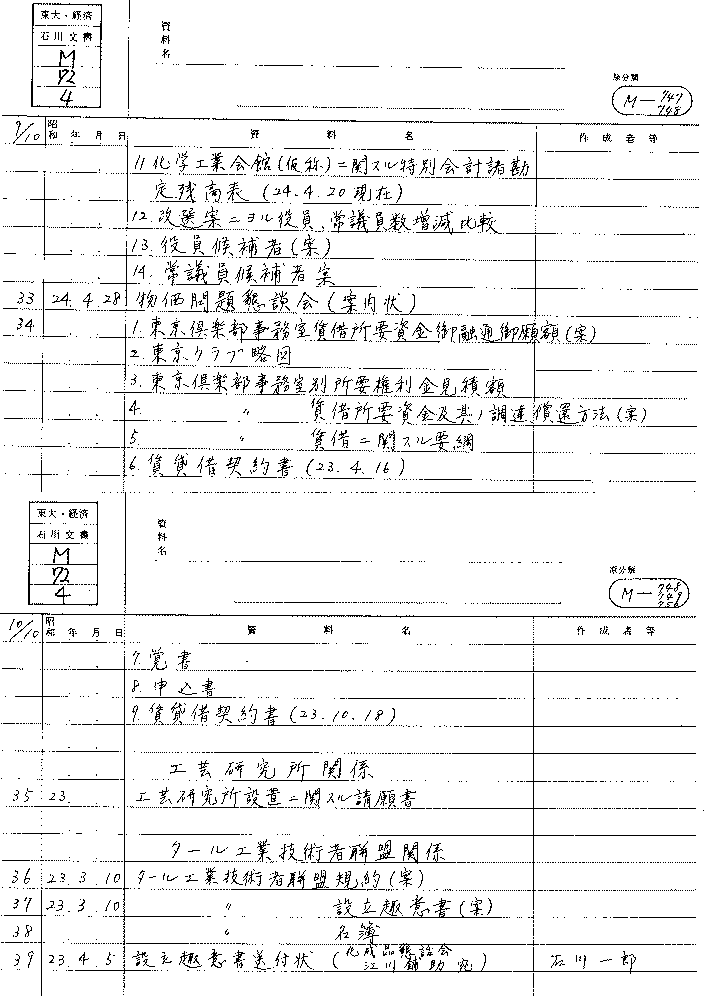 東大・経済
石川文書
M
72
4
資料名
原分類
M—747
748
9/10 昭和 年 月 日 資料名 作成者等
11 化学工業会館(仮称)ニ関スル特別会計諸勘
定残高表(24.4.20現在)
12. 改選案ニヨル役員、常議員数増減比較
13. 役員候補者(案)
14. 常議員候補者案
33 24.4.28 物価問題懇談会(案内状)
34 1. 東京倶楽部事務室賃借所要資金御融通御願額(案)
2. 東京クラブ略図
3. 東京倶楽部事務室別所要権利金見積額
4. 〃 賃借所要資金及其ノ調達償還方法(案)
5. 〃 賃借ニ関スル要綱
6. 賃貸借契約書(23.4.16)
東大・経済
石川文書
M
72
4
資料名
原分類
M—748
749
750
10/10 昭和 年 月 日 資料名 作成者等
7. 覚書
8. 申込書
9. 賃貸借契約書(23.10.18)
工芸研究所関係
35 23. 工芸研究所設置ニ関スル請願書
タール工業技術者聯盟関係
36 23.3.10 タール工業技術者聯盟規約(案)
37 23.3.10 〃 設立趣意書(案)
38 〃 名簿
39 23.4.5 設立趣意書送付状(化成品懇話会 江川鋪助宛) 石川一郎